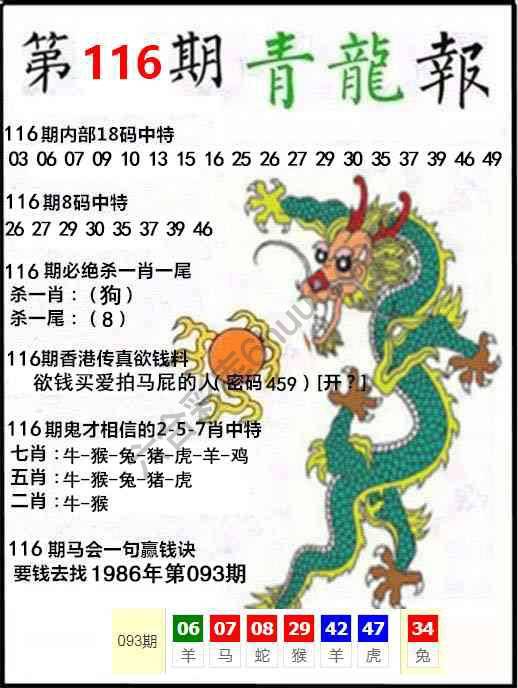 第116期青龍報
116期内部18码中特
03 06 07 09 10 13 15 16 25 26 27 29 30 35 37 39 46 49
116期8码中特
26 27 29 30 35 37 39 46
116期必绝杀一肖一尾
杀一肖：（狗）
杀一尾：（8）
116期香港传真欲钱料
欲钱买爱拍马屁的人（密码459）[开？]
116期鬼才相信的2-5-7肖中特
七肖：牛-猴-兔-猪-虎-羊-鸡
五肖：牛-猴-兔-猪-虎
二肖：牛-猴
116期马会一句赢钱诀
要钱去找1986年第093期
093期 06 07 08 29 42 47 34
羊 马 蛇 猴 羊 虎 兔